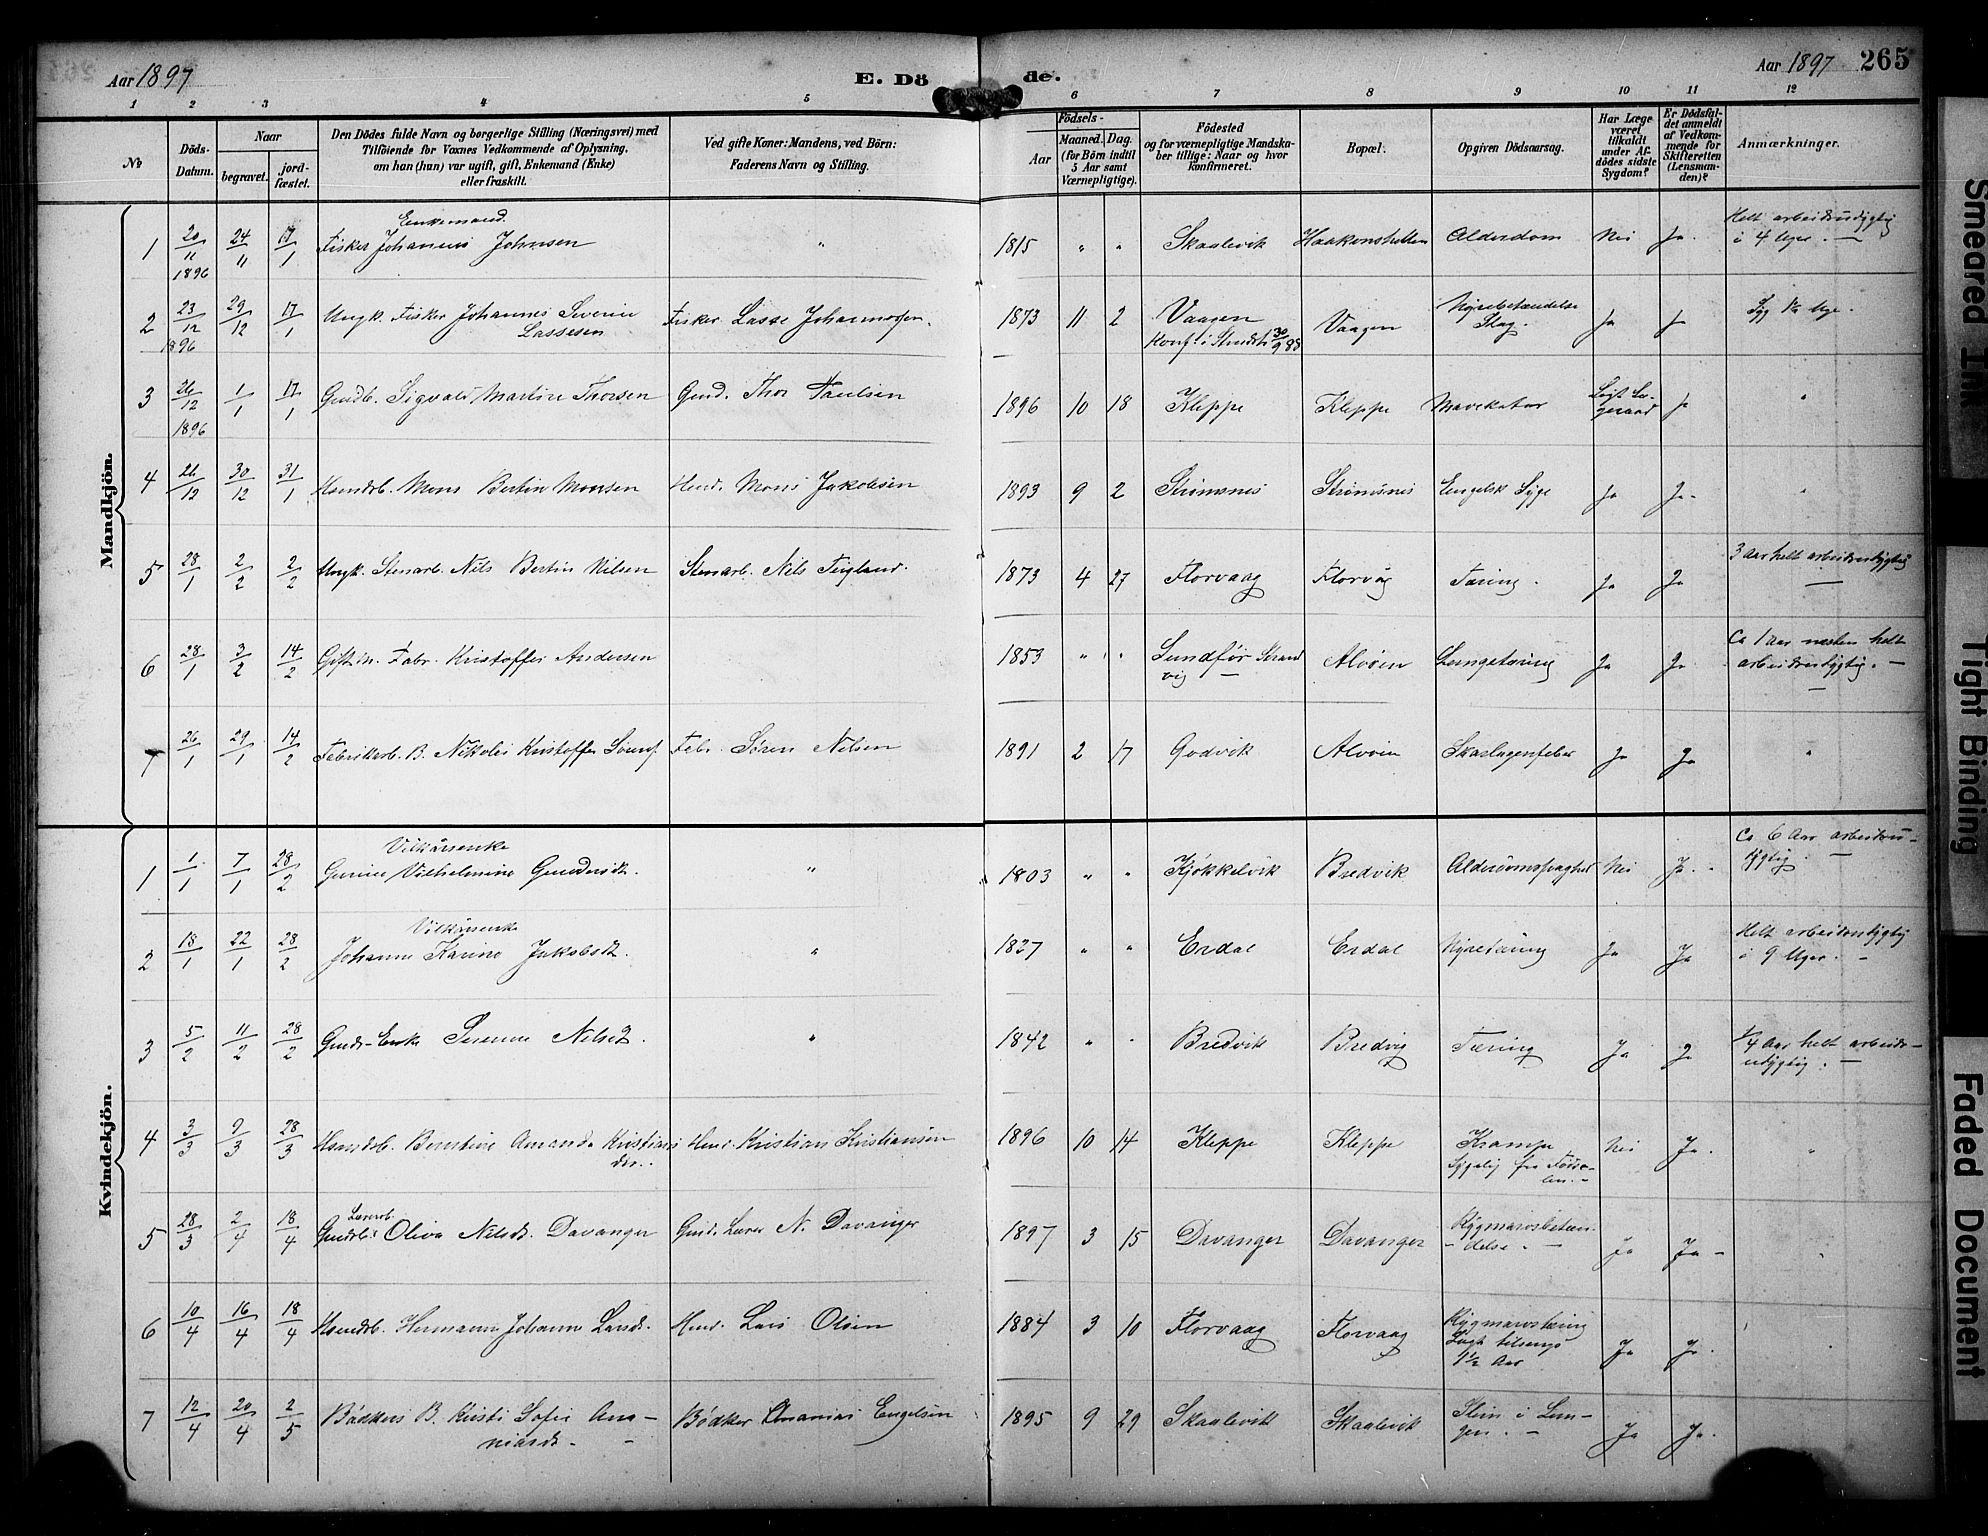 Aar 1897
E. Dö
de.
Aar 1897 265
1 2 3 4 5 6 7 8 9 10 11 12
No
Döds-
Datum.
Naar
begravet.
jord-
fæstet.
Den Dödes fulde Navn og borgerlige Stilling (Næringsvei) med
Tilföiende for Voxnes Vedkommende af Oplysning,
om han (hun) var ugift, gift, Enkemand (Enke)
eller fraskilt.
Ved gifte Koner: Mandens, ved Börn:
Faderens Navn og Stilling.
Födsels-
Aar
Maaned. Dag.
(for Börn indtil
5 Aar samt
Værnepligtige).
Födested
og for værnepligtige Mandska-
ber tillige: Naar og hvor
konfirmeret.
Bopæl.
Opgiven Dödsaarsag.
Har Læge
været
tilkaldt
under Af-
dödes sidste
Sygdom?
Er Dödsfal-
det anmeldt
af Vedkom-
mende for
Skifteretten
(Lensman-
den)?
Anmærkninger.
Mandkjön.
1 20/11 1896 24/11 17/1 Enkemand
Fisker Johannes Johnsen " 1815 " " Skaalevik Haakonshellen Alderdom Nei Ja.
Helt arbeidsudygtig
i 4 Uger. —
2 23/12 1896 29/12 17/1 Ungk. Fisker Johannes Severin
Lassesen
Fisker Lasse Johannesen. 1873 11 2 Vaagen
Konf. i 30/9 88
Vaagen
Nyrebetændelse
Slag.
Ja Ja
Syg Uge.
3 26/12 1896 1/1 17/1 Gmdb. Sigvald Martin Thorsen Gmd. Thor Paulsen 1896 10 18 Kleppe Kleppe Mavekatar
Søgt Læ-
geraad
Ja "
4 26/12 30/12 31/1 Hsmdsb. Mons Bertin Monsen Hmd. Mons Jakobsen 1893 9 2 Strømsnes Strømsnes Engelsk Syge Ja Ja- "
5 28/1 2/2 2/2 Ungk. Stenarb. Nils Bertin Nilsen Stenarb. Nils Fugland. 1873 4 27 Florvaag Florvåg Tæring. Ja Ja
3 Aar helt arbeidsudygtig
—
6 28/1 3/2 14/2 Gift M. Fabr. Kristoffer Andersen 1853 " " Sundfør Strand
vig —
Alvøen Lungetæring Ja Ja
Ca 1 Aar næsten helt
arbeidsudygtig. —
7 26/1 29/1 14/2 Fabrikarb. B. Nikolai Kristoffer Sørens. Fabr. Søren Nilsen 1891 2 17 Godvik Alvøen Skarlagensfeber Ja Ja "
Kvindekjön.
1 1/1 7/1 28/2 Vilkårsenke
Gurine Vilhelmine Gundersdt. " 1803 " " Kjøkkelvik Bredvik Alderdomssvaghed Nei Ja. "
Ca 6 Aar arbeidsu-
dygtig. —
2 18/1 22/1 28/2 Vilkårsenke
Johanne Karine Jakobsdt. " 1827 " " Erdal Erdal Nyretæring Ja Ja
Helt arbeidsudygtig
i 9 Uger. -
3 5/2 11/2 28/2 Gmds-Enke Serenne Nilsdt. " 1842 " " Bredvik Bredvig Tæring Ja Ja
1/4 Aar helt arbeids-
udygtig. —
4 3/3 9/3 28/3 Hsmdsb. Berntine Amanda Kristians
dtr.
Hmd. Kristian Kristiansen 1896 10 14 Kleppe Kleppe
Krampe
Sygelig fra Fødse-
len. -
Nei Ja. "
5 28/3 2/4 18/4 Lærerb.
Gmdsb. Oliva Nilsdt. Davanger Gmd. Lærer N. Davanger 1897 3 15 Davanger Davanger
Rygmarvsbetæn-
delse. —
Ja Ja - "
6 10/4 16/4 18/4 Hsmdsb. Hermanne Johanne Larsdt. Hmd. Lars Olsen 1884 3 10 Florvaag Florvaag
Rygmarvstæring
Ligt tilsengs
1½ Aar
Ja Ja.
7 12/4 20/4 2/5 Bødkers B. Kristi Sofie Ana-
niasdt. -
Bødker Ananias Engelsen 1895 9 29 Skaalevik Skaalevik
Slim i Lun-
gen. -
Ja Ja.
Smeared Ink
Tight Binding
Faded Document